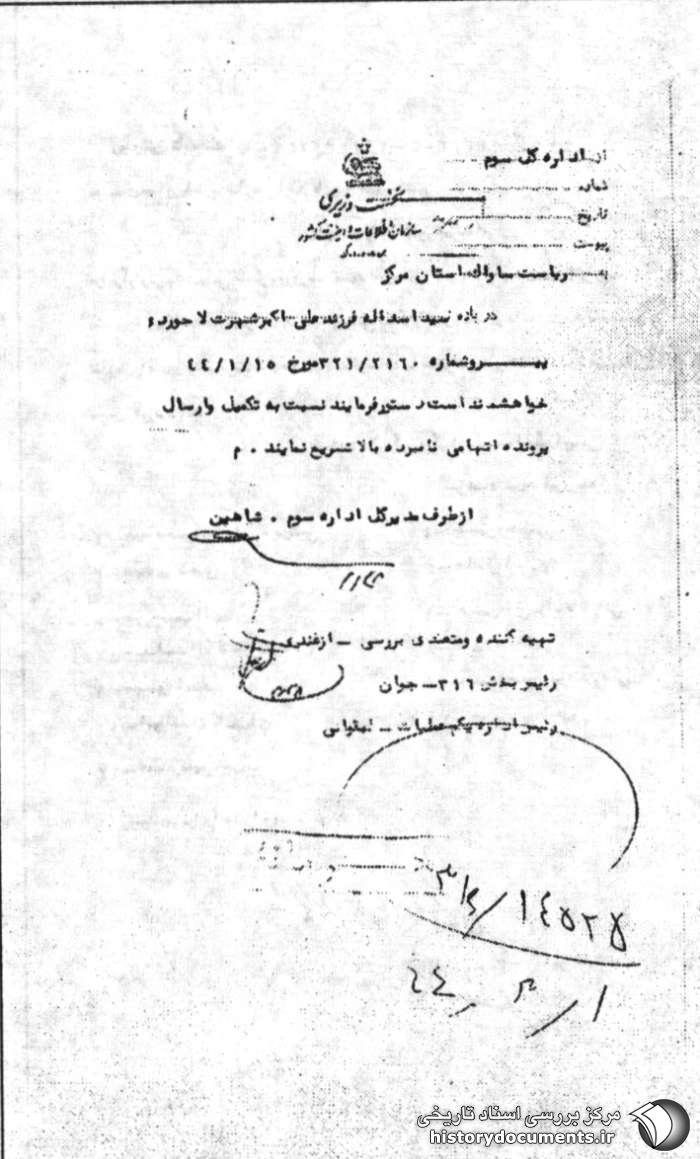 از اداره کل سوم
شماره
تاریخ
پیوست
نخست وزیری
سازمان اطلاعات و امنیت کشور
به ریاست ساواک استان مرکز
درباره سید اسداله فرزند علی اکبر شهرت لاجورد
پیـــــرو شماره ۳۲۱/۲۱۶۰ مورخ ۴۴/۱/۱۵
خواهشمند است دستور فرمایند نسبت به تکمیل و ارسال
پرونده اتهامی نامبرده بالا تسریع نمایند . م
از طرف مدیر کل اداره سوم . شاهین
تهیه کننده و متصدی بررسی ـ ازغندی
رئیس بخش ۳۱۶ ـ جوان
رئیس اداره یکم عملیات ـ
۳۱۶/۱۴۵۲۵
۴۴/۳/۱
مرکز بررسی اسناد تاریخی
historydocuments.ir